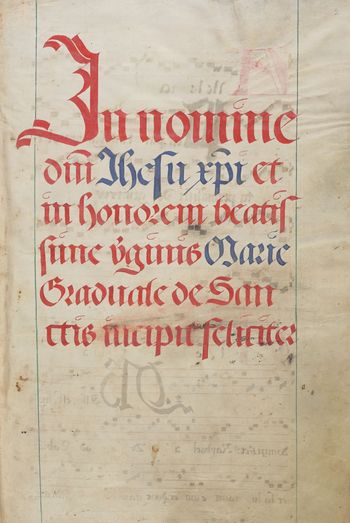 In nomine
dnī Ihesu xp̄i et
in honorem beatiſ
ſime v̄ginis Marie
Graduale de San
ctis incipit feliciter